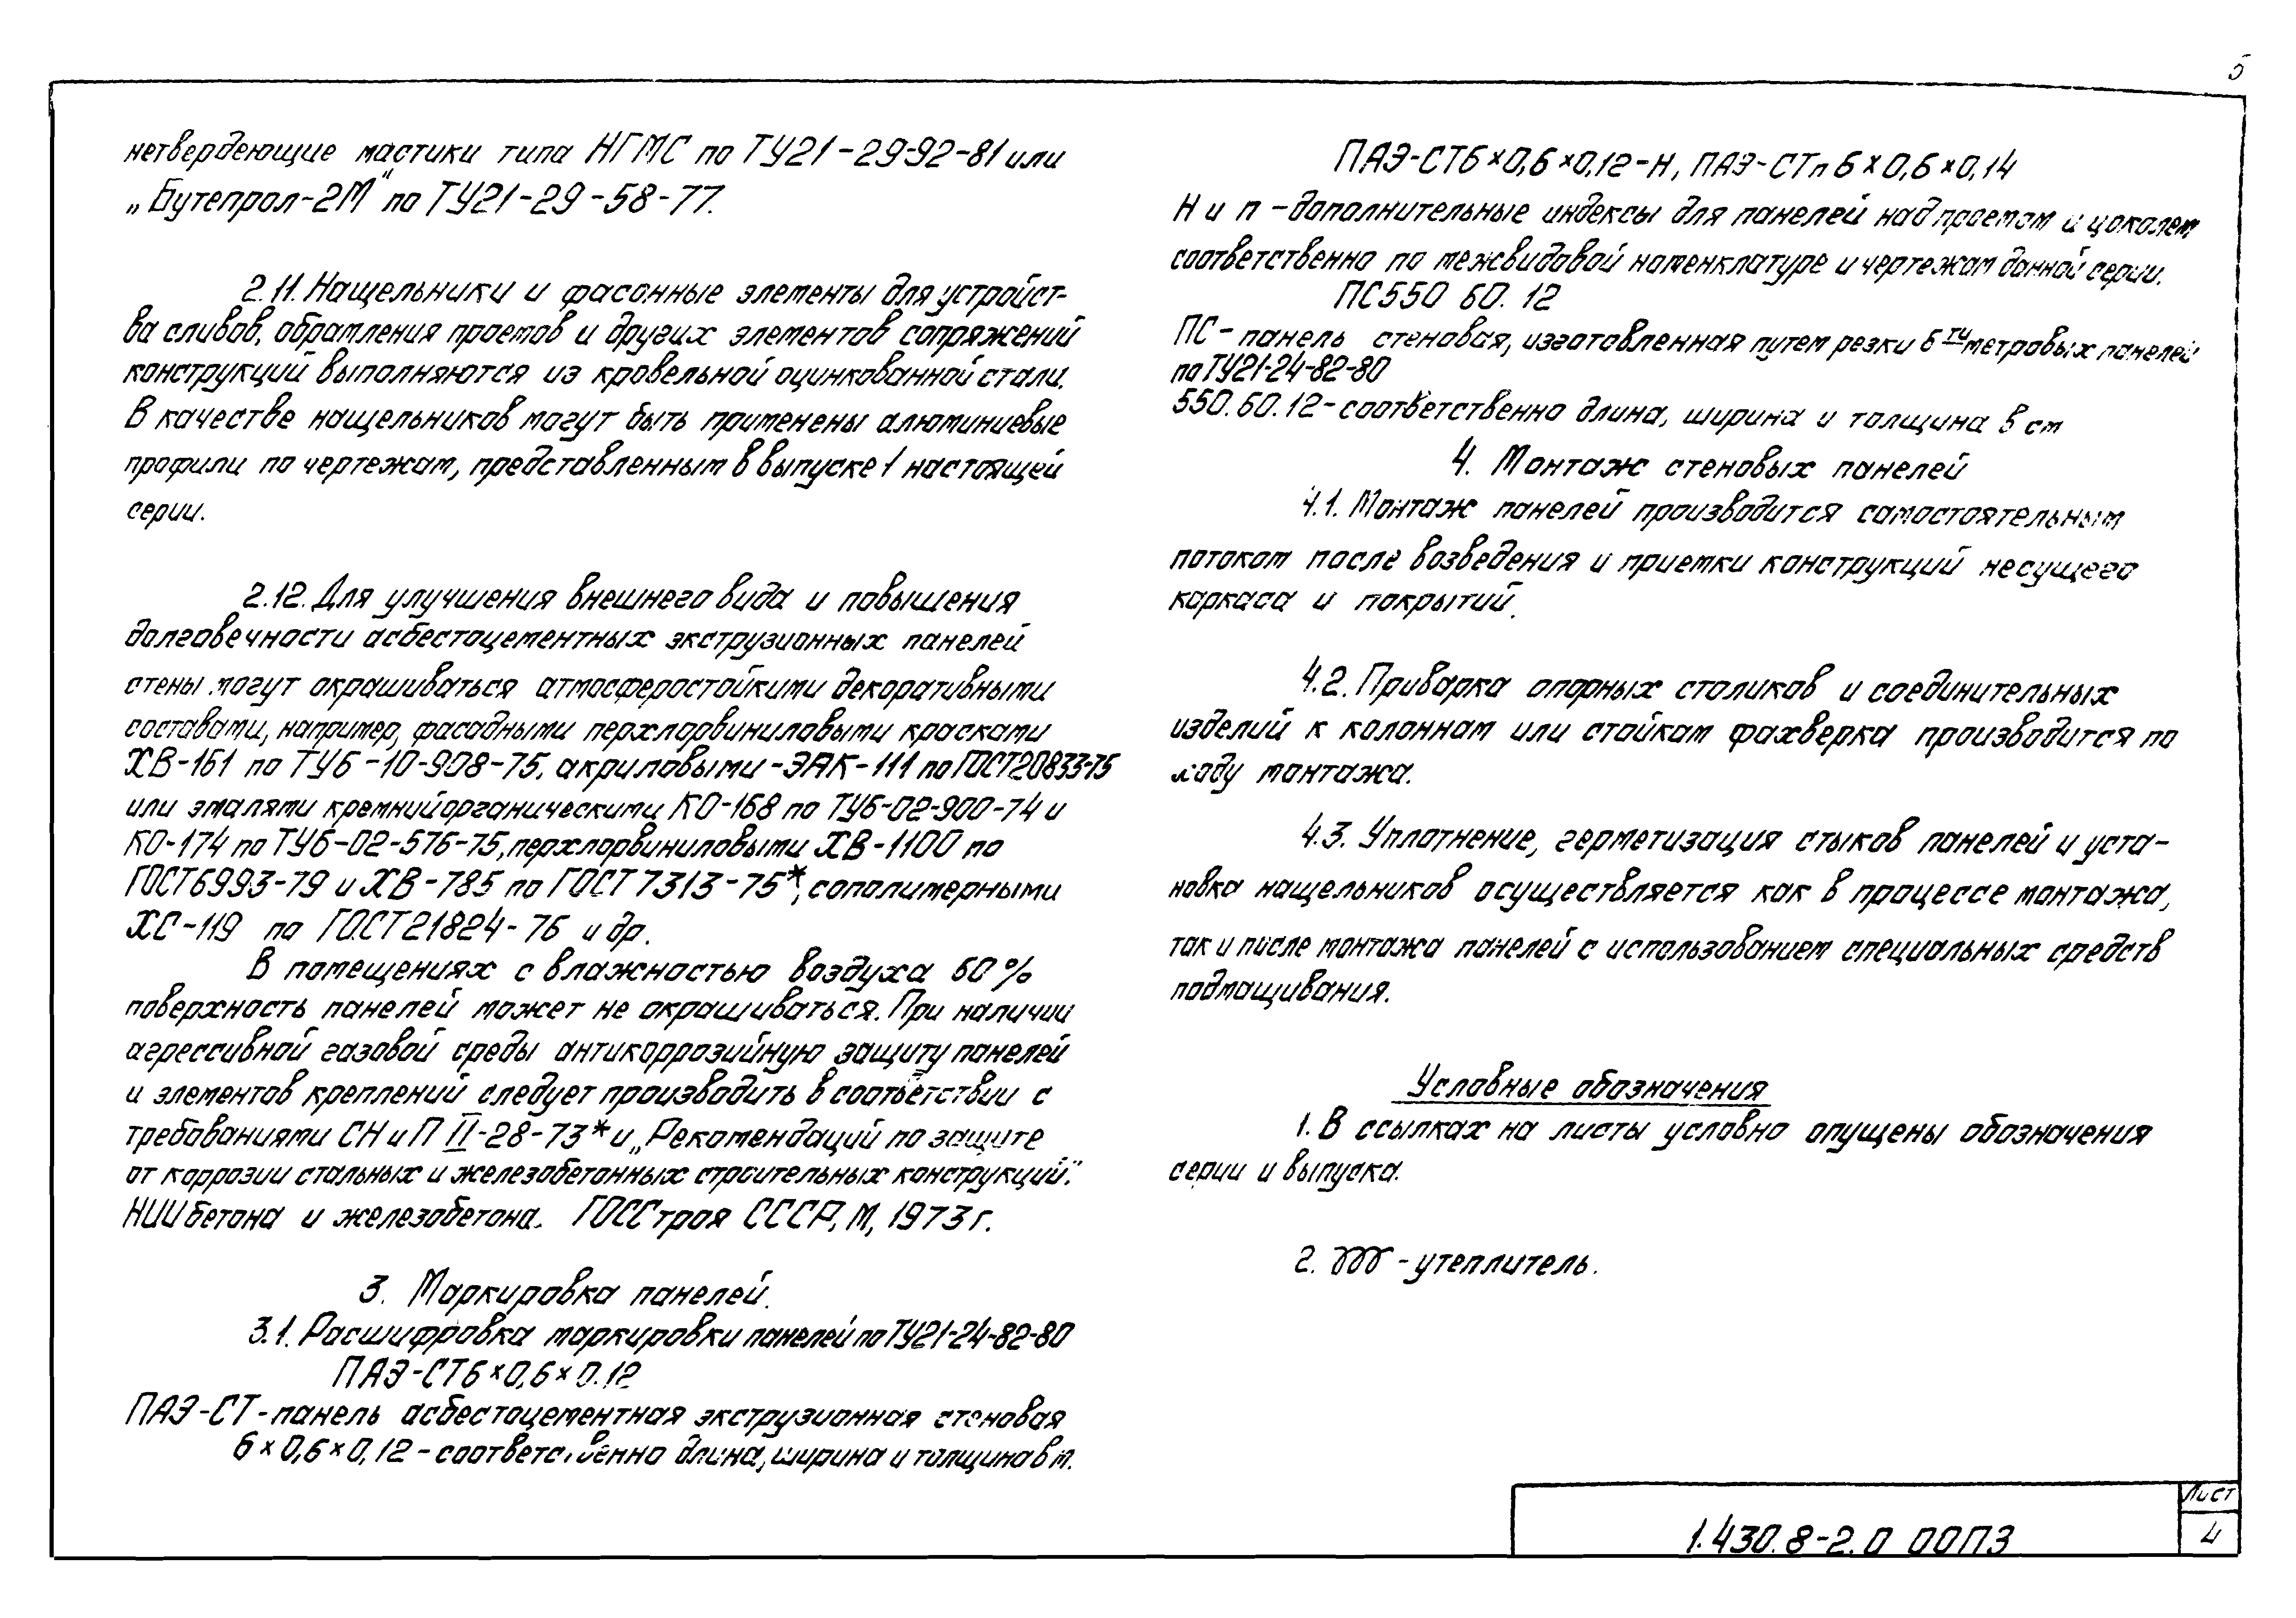 5
нетвердеющие мастики типа НГМС по ТУ21-29-92-81 или
„Бутепрол-2М" по ТУ21-29-58-77.
2.11. Нащельники и фасонные элементы для устройст-
ва сливов, обрамления проемов и других элементов сопряжений
конструкций выполняются из кровельной оцинкованной стали.
В качестве нащельников могут быть применены алюминиевые
профили по чертежам, представленным в выпуске 1 настоящей
серии.
2.12. Для улучшения внешнего вида и повышения
долговечности асбестоцементных экструзионных панелей
стены могут окрашиваться атмосферостойкими декоративными
составами, например, фасадными перхлорвиниловыми красками
ХВ-161 по ТУ6-10-908-75, акриловыми-ЭАК-111 по ГОСТ20833-75
или эмалями кремнийорганическими КО-168 по ТУ6-02-900-74 и
КО-174 по ТУ6-02-576-75, перхлорвиниловыми ХВ-1100 по
ГОСТ6993-79 и ХВ-785 по ГОСТ 7313-75*, сополимерными
ХС-119 по ГОСТ21824-76 и др.
В помещениях с влажностью воздуха 60%
поверхность панелей может не окрашиваться. При наличии
агрессивной газовой среды антикоррозийную защиту панелей
и элементов креплений следует производить в соответствии с
требованиями СНиП II-28-73* и „Рекомендаций по защите
от коррозии стальных и железобетонных строительных конструкций".
НИИ бетона и железобетона. ГОССтроя СССР, М, 1973 г.
3. Маркировка панелей.
3.1. Расшифровка маркировки панелей по ТУ21-24-82-80
ПАЭ-СТ6×0,6×0.12
ПАЭ-СТ-панель асбестоцементная экструзионная стеновая
6×0,6×0,12-соответственно длина, ширина и толщина в м.
ПАЭ-СТ6×0,6×0,12-Н, ПАЭ-СТп 6×0,6×0,14
Н и п -дополнительные индексы для панелей над проемом и цоколем
соответственно по межвидовой номенклатуре и чертежам данной серии.
ПС550 60. 12
ПС- панель стеновая, изготовленная путем резки 6ти метровых панелей
по ТУ21-24-82-80
550.60.12-соответственно длина, ширина и толщина в см
4. Монтаж стеновых панелей
4.1. Монтаж панелей производится самостоятельным
потоком после возведения и приемки конструкций несущего
каркаса и покрытий.
4.2. Приварка опорных столиков и соединительных
изделий к колоннам или стойкам фахверка производится по
ходу монтажа.
4.3. Уплотнение, герметизация стыков панелей и уста-
новка нащельников осуществляется как в процессе монтажа,
так и после монтажа панелей с использованием специальных средств
подмащивания.
Условные обозначения
1. В ссылках на листы условно опущены обозначения
серии и выпуска.
2. - утеплитель.
1.430.8-2.0 00ПЗ
Лист
4